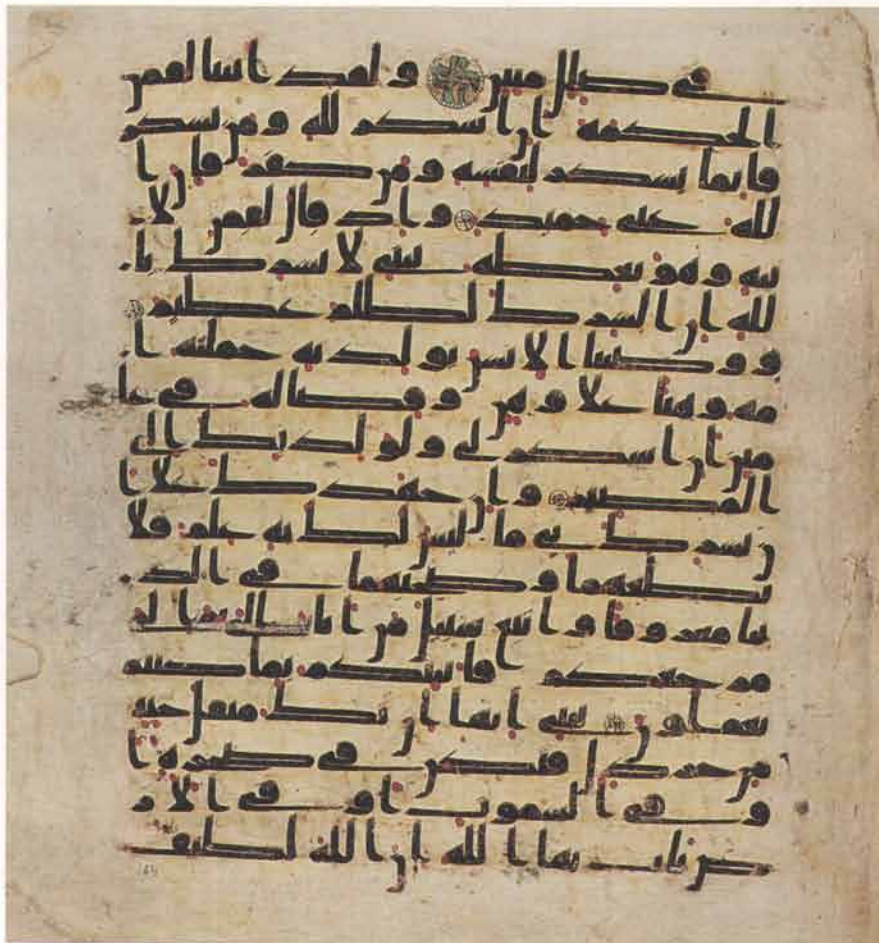 في ضلل مبين ولقد اتينا لقمن
الحكمة ان اشكر لله ومن يشكر
فانما يشكر لنفسه ومن كفر فان ا
لله غني حميد واذ قال لقمن لا
بنه وهو يعظه يبني لا تشرك با
لله ان الشرك لظلم عظيم
ووصينا الانسن بولديه حملته ا
مه وهنا علا وهن وفصاله في عا
مين ان اشكر لي ولولديك الي
المصير وان جهدك علا ا
ن تشرك بي ما ليس لك به علم فلا
تطعهما وصحبهما في الد
نيا معروفا واتبع سبيل من اناب الي ثم الي
مرجعكم فانبئكم بما كنتم
تعملون يبني انها ان تك مثقل حبة
من خردل فتكن في صخرة ا
و في السموت او في الار
ض يات بها الله ان الله لطيف